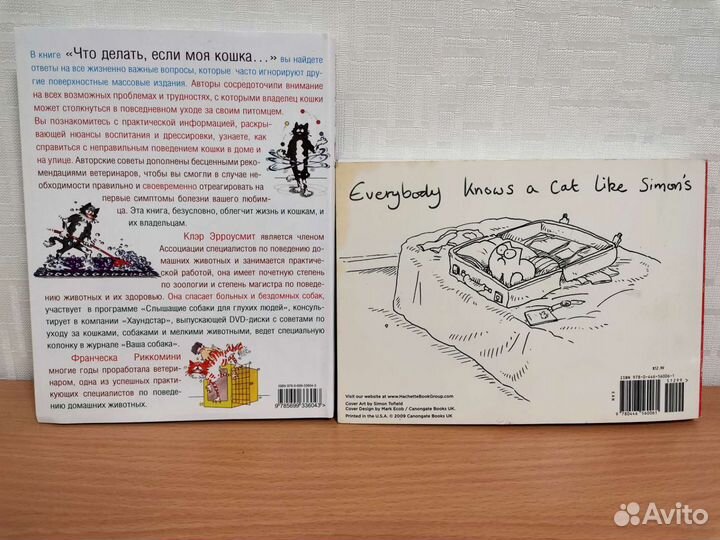 В книге «Что делать, если моя кошка...» вы найдете
ответы на все жизненно важные вопросы, которые часто игнорируют дру-
гие поверхностные массовые издания. Авторы сосредоточили внимание
на всех возможных проблемах и трудностях, с которыми владелец кошки
может столкнуться в повседневном уходе за своим питомцем.
Вы познакомитесь с практической информацией, раскры-
вающей нюансы воспитания и дрессировки, узнаете, как
справиться с неправильным поведением кошки в доме и
на улице. Авторские советы дополнены бесценными реко-
мендациями ветеринаров, чтобы вы смогли в случае не-
обходимости правильно и своевременно отреагировать на
первые симптомы болезни вашего любим-
ца. Эта книга, безусловно, облегчит жизнь и кошкам, и
их владельцам.
Клэр Эрроусмит является членом
Ассоциации специалистов по поведению до-
машних животных и занимается практиче-
ской работой, она имеет почетную степень
по зоологии и степень магистра по поведе-
нию животных и их здоровью. Она спасает больных и бездомных собак,
участвует в программе «Слышащие собаки для глухих людей», консуль-
тирует в компании «Хаундстар», выпускающей DVD-диски с советами по
уходу за кошками, собаками и мелкими животными, ведет специальную
колонку в журнале «Ваша собака».
Франческа Риккомини
многие годы проработала ветери-
наром, одна из успешных практи-
кующих специалистов по поведе-
нию домашних животных.
ISBN 978-5-699-33604-3
9 785699 336043
Everybody knows a Cat Like Simon's
$12.99
ISBN 978-0-446-56006-1
51299
EAN
9 780446 560061
Visit our website at www.HachetteBookGroup.com
Cover Art by Simon Tofield
Cover Design by Mark Ecob / Canongate Books UK.
Printed in the U.S.A. © 2009 Canongate Books UK
Avito